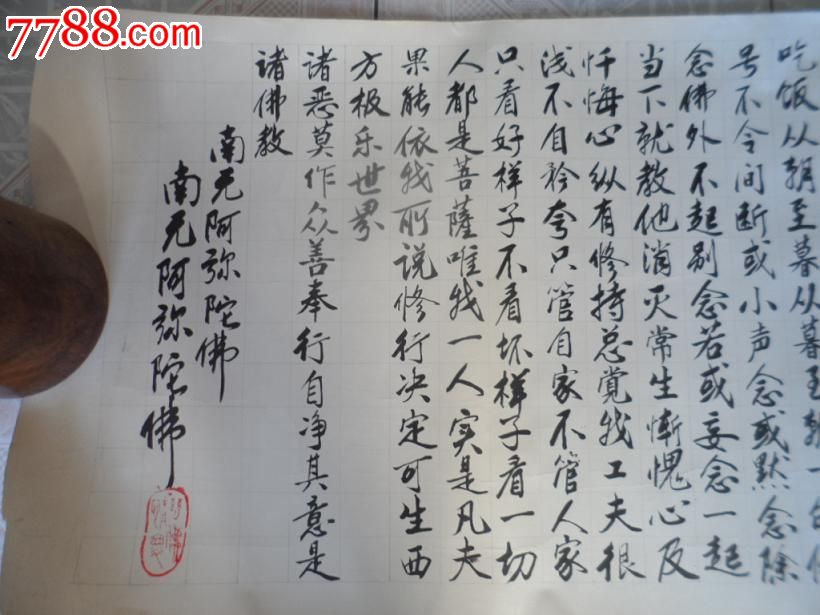 7788.com
吃饭从朝至暮从暮至朝一句佛
号不令间断或小声念或默念除
念佛外不起别念若或妄念一起
当下就教他消灭常生惭愧心及
忏悔心纵有修持总觉我工夫很
浅不自矜夸只管自家不管人家
只看好样子不看坏样子看一切
人都是菩萨唯我一人实是凡夫
果能依我所说修行决定可生西
方极乐世界
诸恶莫作众善奉行自净其意是
诸佛教
南无阿弥陀佛
南无阿弥陀佛